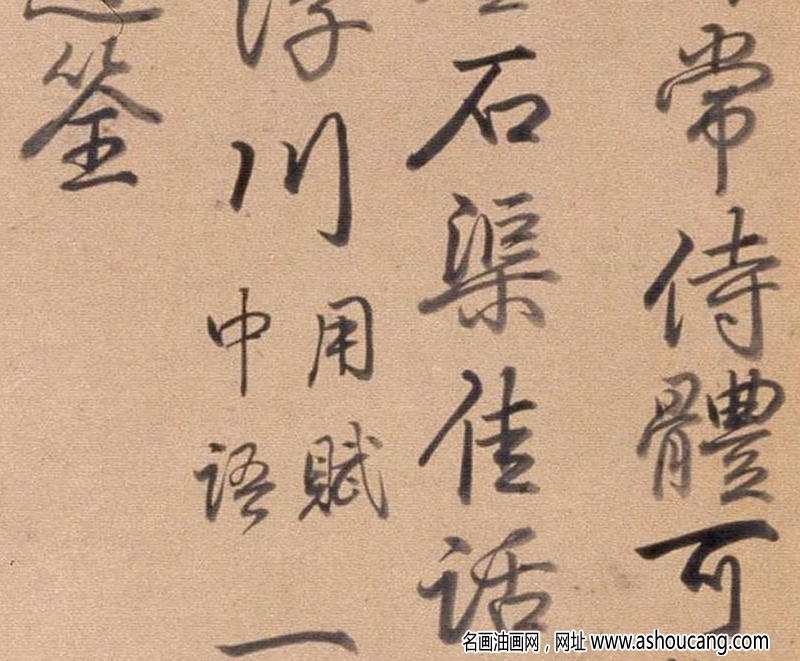 常侍體可
石渠佳話
浮川用賦中語一
筌
名画油画网，网址 www.ashoucang.com